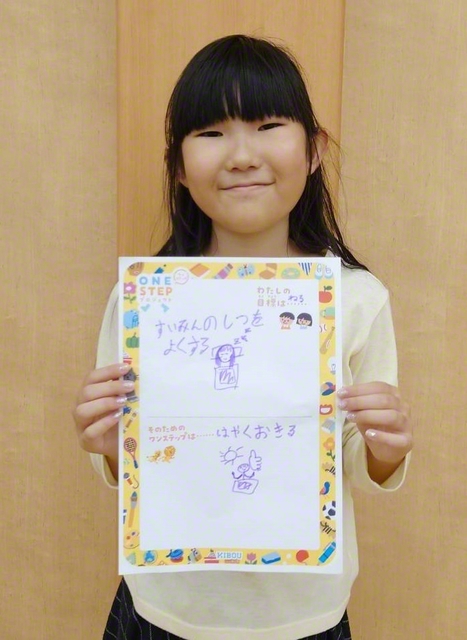 ONE
STEP
プロジェクト
わたしの
目標は……ねる
すいみんのしつを
よくする
zzz
そのための
ワンステップは……はやくおきる
KIBOU